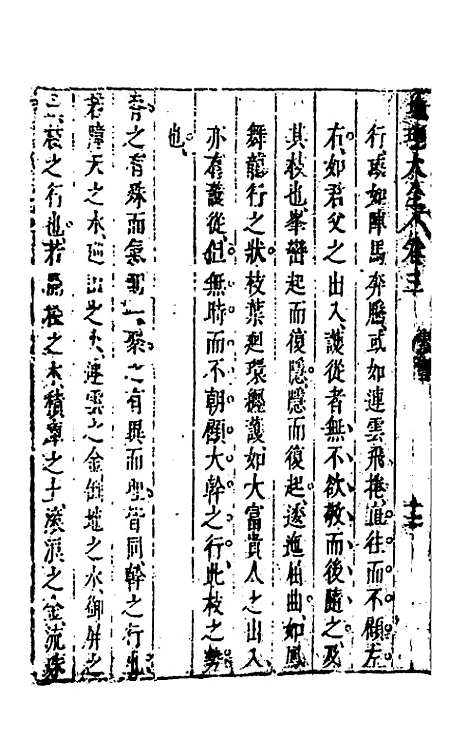 地理大全 卷三 十二
行、或如陣馬奔馳、或如連雲飛捲、直往而不顧左
右、如君父之出入、護從者無不欲敬而後隨之、及
其枝也、峯巒起而復隱、隱而復起、逶迤柏曲、如鳳
舞龍行之狀、枝葉廻環纏護、如大富貴人之出入、
亦有護從、但無時而不朝顧大幹之行、此枝之勢
也、
之有殊而氣一、之有異而理皆同、幹之行也、
若障天之水、出之火、連雲之金、之水、御屏之
土、枝之行也、若之木、積之土、溪浪之金、流珠